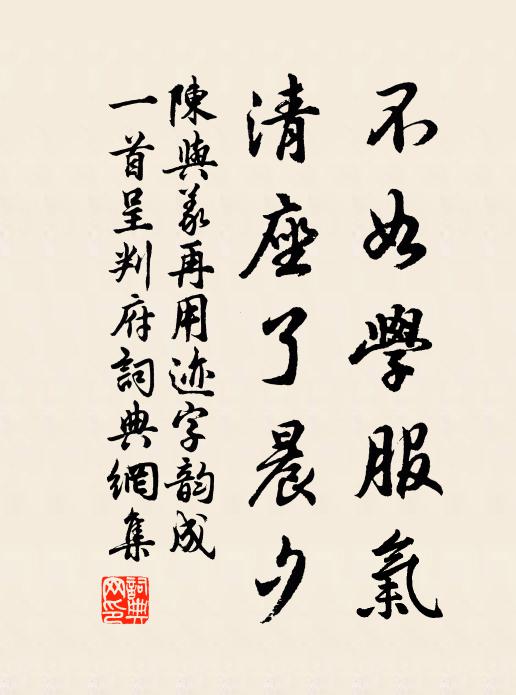 不如學服氣
清座了晨夕
陳與義再用迹字韵成
一首呈判府詞典網集
詞典
网印